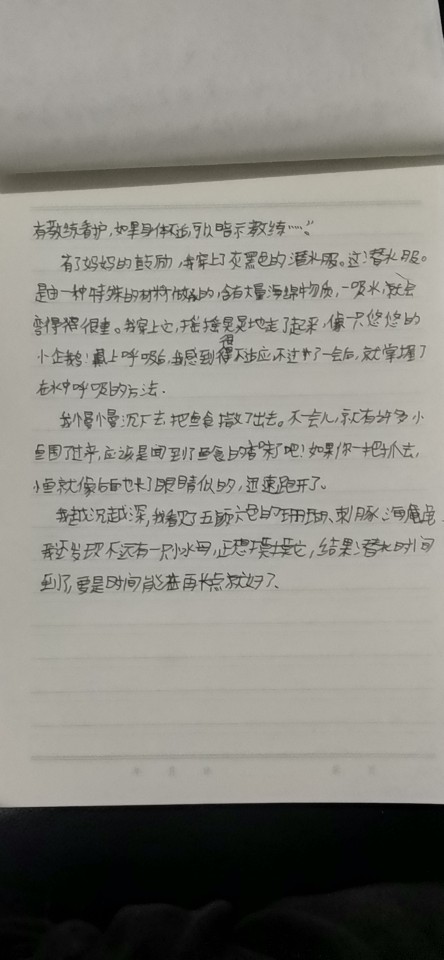 有教练看护,如果身体不适,可以暗示教练……”
有了妈妈的鼓励,我穿上了灰黑色的潜水服。这潜水服。
是由一种特殊的材料做的,含有大量海绵物质,一吸水,就会
变得很重。我穿上它,摇摇晃晃地走了起来,像一只悠悠的
小企鹅!戴上呼吸后,我感到很不适应,不过一会后,就掌握了
在水中呼吸的方法.
我慢慢沉下去,把鱼食撒了出去。不一会儿,就有许多小
鱼围了过来,应该是闻到了鱼食的香味了吧!如果你一把抓去,
小鱼就像后面也长了眼睛似的,迅速跑开了。
我越沉越深,我看见了五颜六色的珊瑚、刺豚、海龟
我还发现不远有一只小水母,正想摸摸它,结果潜水时间
到了,要是时间能再长点就好了.